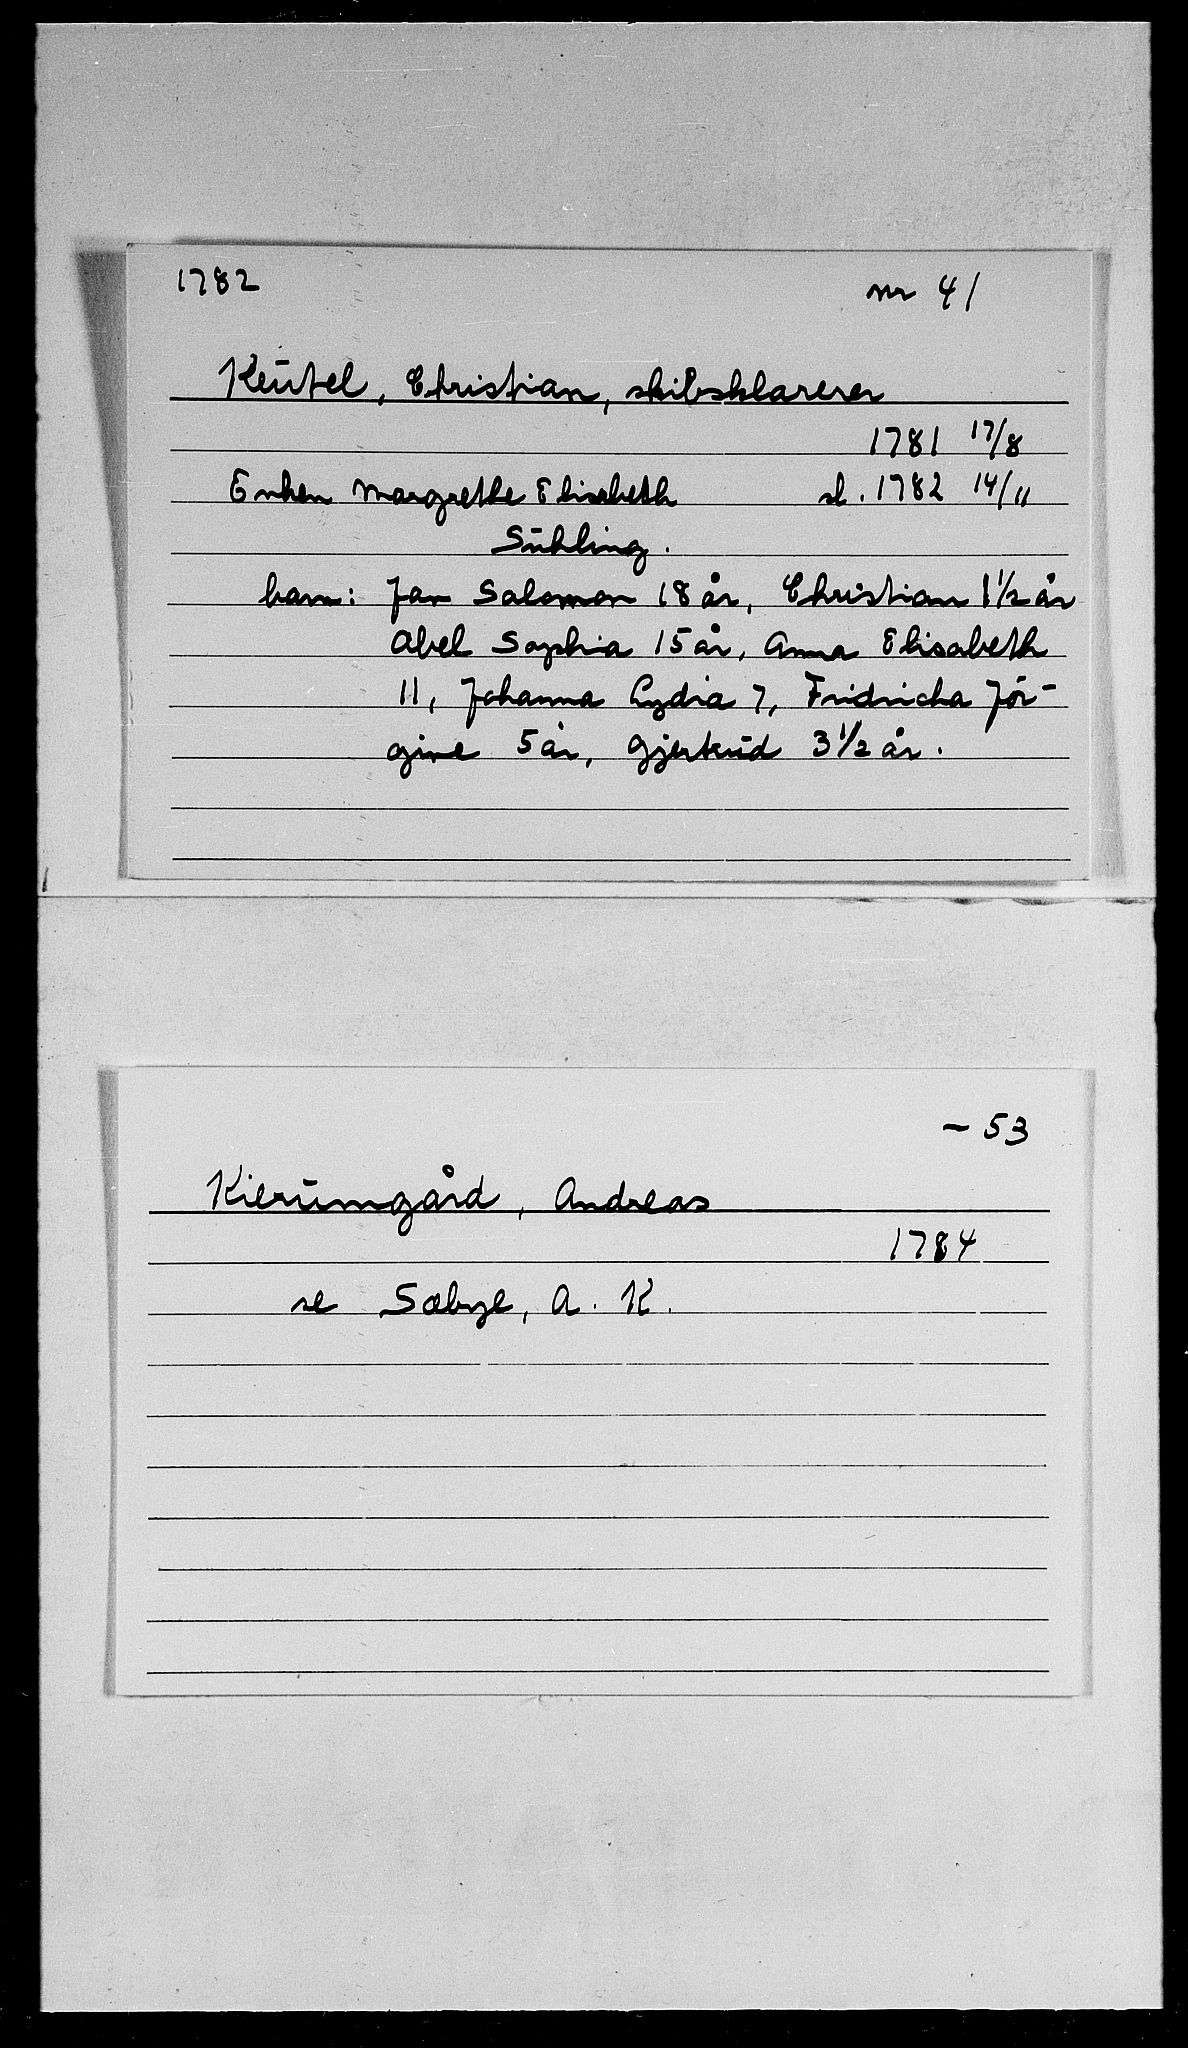 1782 nr 41
Keutel, Christian, skibsklarerer
1781 17/8
Enken Margrethe Elisabeth sl. 1782 14/11
Suhling.
barn: Jan Salomon 18 år, Christian 1 1/2 år
Abel Sophia 15 år, Anna Elisabeth
11, Johanna Lydia 7, Fridricha Jör-
gine 5 år, Gjertrud 3 1/2 år.
- 53
Kierumgård, Andreas
1784
se Sæbye, A. K.